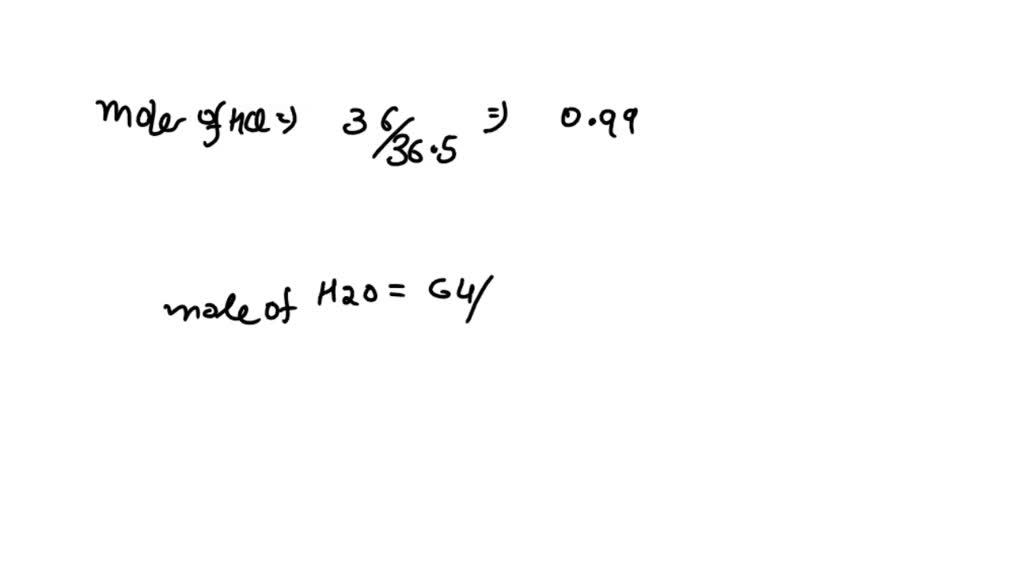 Moles of HCl ⇒ 36/36.5 ⇒ 0.99
mole of H2O = 64/